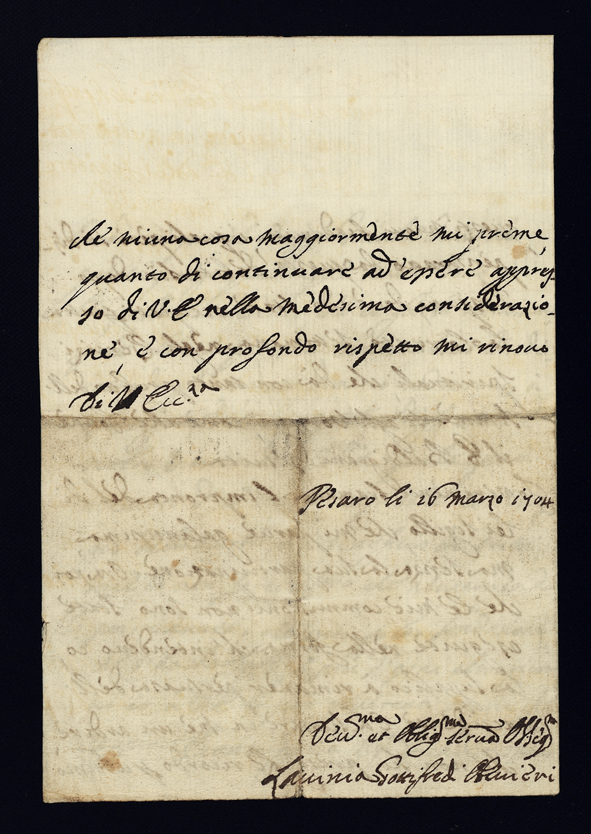 che niuna cosa maggiormente mi preme,
quanto di continuare ad essere appres-
so di V E nella medesima considerazio-
ne, e con profondo rispetto mi rinovo
Di V Ecc.za
Pesaro li 16 marzo 1704
Deu.ma et Oblig.ma serua Osseq.ma
Lauinia Gottifredi Oliuieri